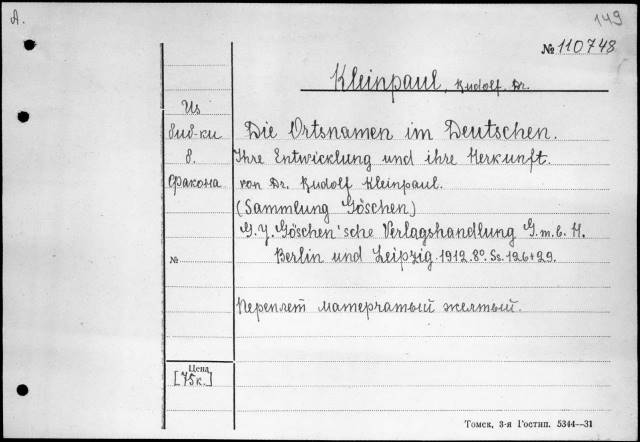 A.
149
№ 110748
Kleinpaul, Rudolf. Dr.
Из
биб-ки
б.
Фракона
№
Die Ortsnamen im Deutschen.
Ihre Entwicklung und ihre Herkunft.
von Dr. Rudolf Kleinpaul.
(Sammlung Göschen)
G.J. Göschen'sche Verlagshandlung G.m.b.H.
Berlin und Leipzig. 1912. 8º. Ss. 126+29.
Переплет матерчатый желтый.
Цена
[75к.]
Томск, 3-я Гостип. 5344—31